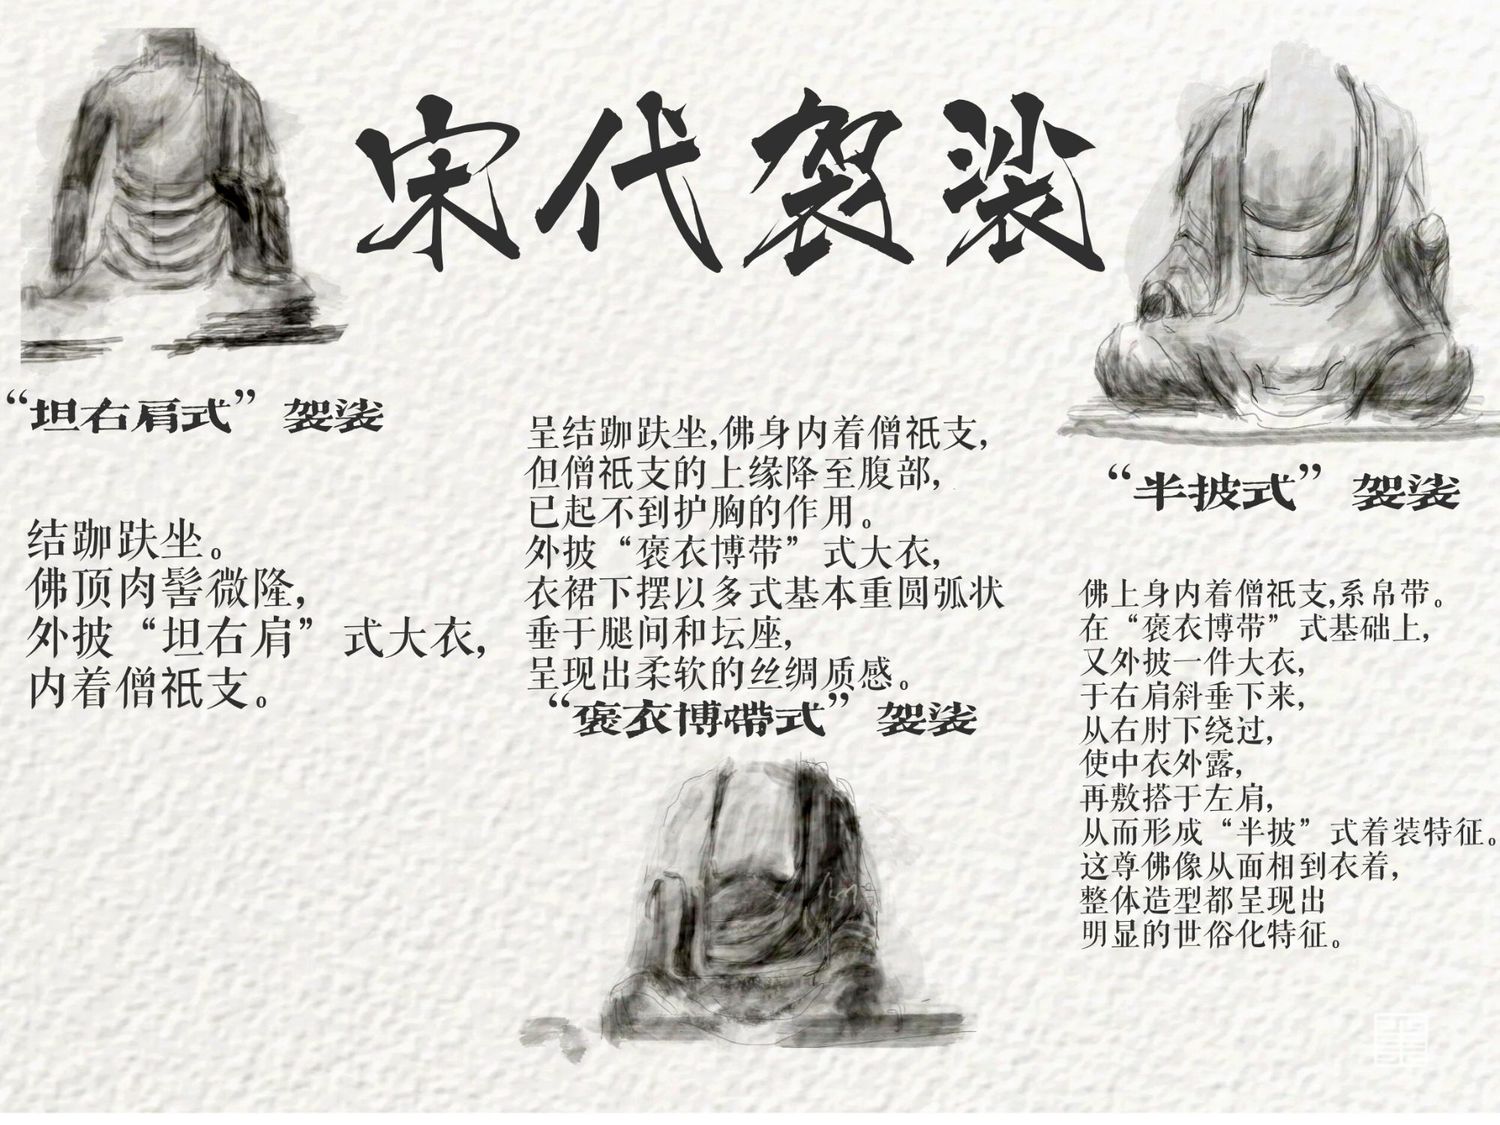 宋代袈裟
“坦右肩式”袈裟
结跏趺坐。
佛顶肉髻微隆,
外披“坦右肩”式大衣,
内着僧祇支。
呈结跏趺坐,佛身内着僧祇支,
但僧祇支的上缘降至腹部,
已起不到护胸的作用。
外披“褒衣博带”式大衣,
衣裙下摆以多式基本重圆弧状
垂于腿间和坛座,
呈现出柔软的丝绸质感。
“褒衣博带式”袈裟
“半披式”袈裟
佛上身内着僧祇支,系帛带。
在“褒衣博带”式基础上,
又外披一件大衣,
于右肩斜垂下来,
从右肘下绕过,
使中衣外露,
再敷搭于左肩,
从而形成“半披”式着装特征。
这尊佛像从面相到衣着,
整体造型都呈现出
明显的世俗化特征。